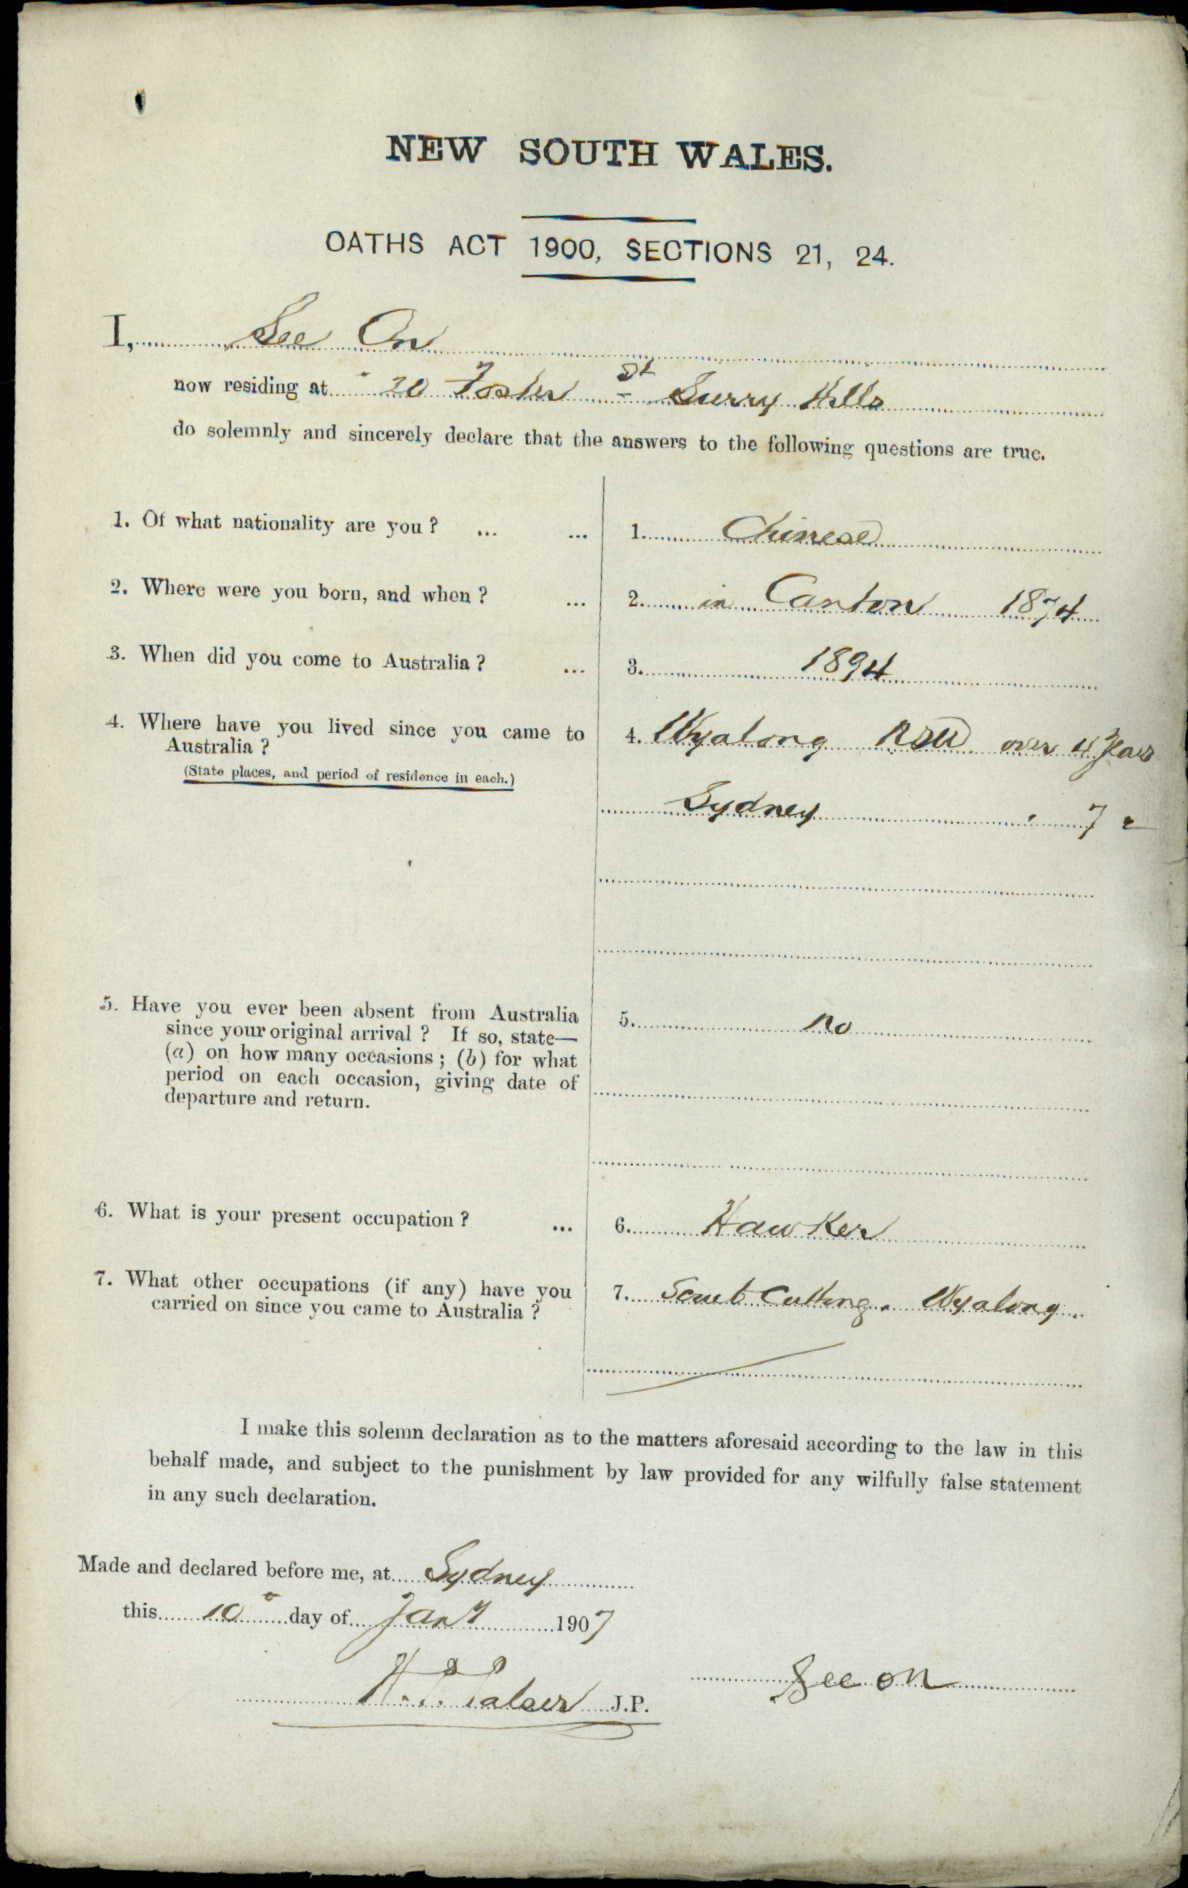 NEW SOUTH WALES.
OATHS ACT 1900, SECTIONS 21, 24.
I, See On
now residing at 20 Foster St Surry Hills
do solemnly and sincerely declare that the answers to the following questions are true.
1. Of what nationality are you ? ... ... 1. Chinese
2. Where were you born, and when ? ... 2. in Canton 1874
3. When did you come to Australia ? ... 3. 1894
4. Where have you lived since you came to 4. Wyalong NSW over 4 years
Australia ?
(State places, and period of residence in each.)
Sydney 7 "
5. Have you ever been absent from Australia 5. No
since your original arrival ? If so, state—
(a) on how many occasions ; (b) for what
period on each occasion, giving date of
departure and return.
6. What is your present occupation ? ... 6. Hawker
7. What other occupations (if any) have you 7. Scrub Cutting. Wyalong.
carried on since you came to Australia ?
I make this solemn declaration as to the matters aforesaid according to the law in this
behalf made, and subject to the punishment by law provided for any wilfully false statement
in any such declaration.
Made and declared before me, at Sydney
this 10 day of Jany 1907
See on
H. J.P.